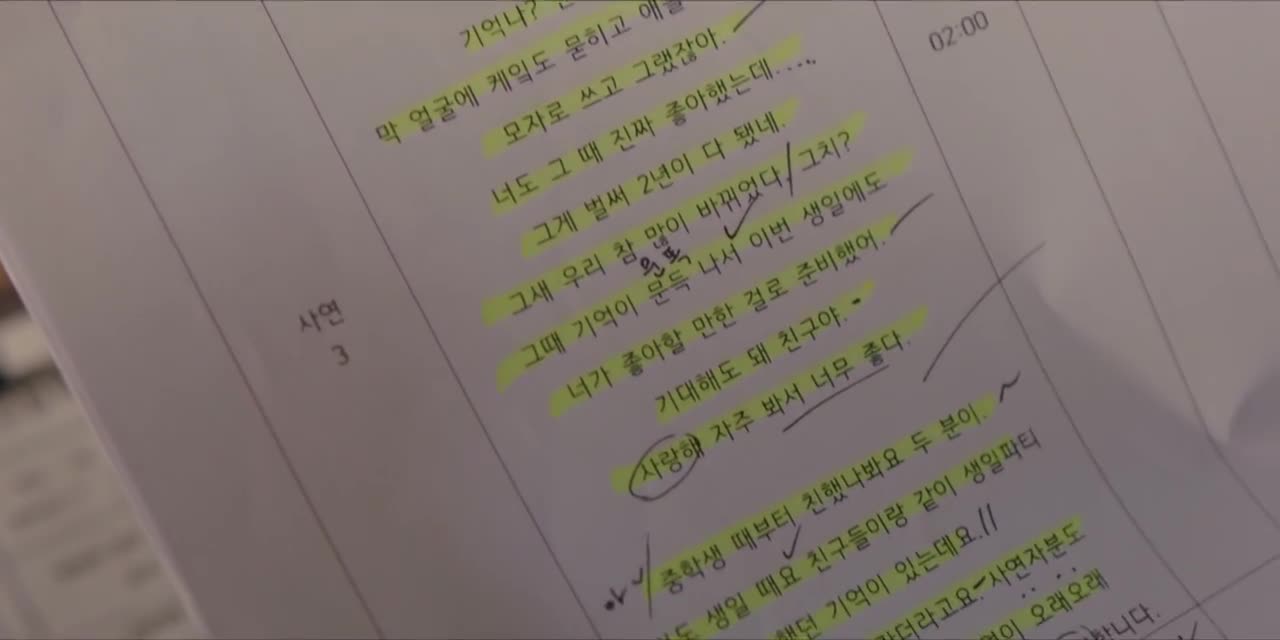 기억나?
막 얼굴에 케잌도 묻히고
모자로 쓰고 그랬잖아.
너도 그 때 진짜 좋아했는데....
그게 벌써 2년이 다 됐네.
그새 우리 참 많이 바뀌었다 그치?
그때 기억이 문득 나서 이번 생일에도
너가 좋아할 만한 걸로 준비했어.
기대해도 돼 친구야.
사랑해 자주 봐서 너무 좋다.
중학생 때부터 친했나봐요 두 분이.
생일 때요 친구들이랑 같이 생일파티
했던 기억이 있는데요.
사연자분도
오래오래
사연
3
02:00